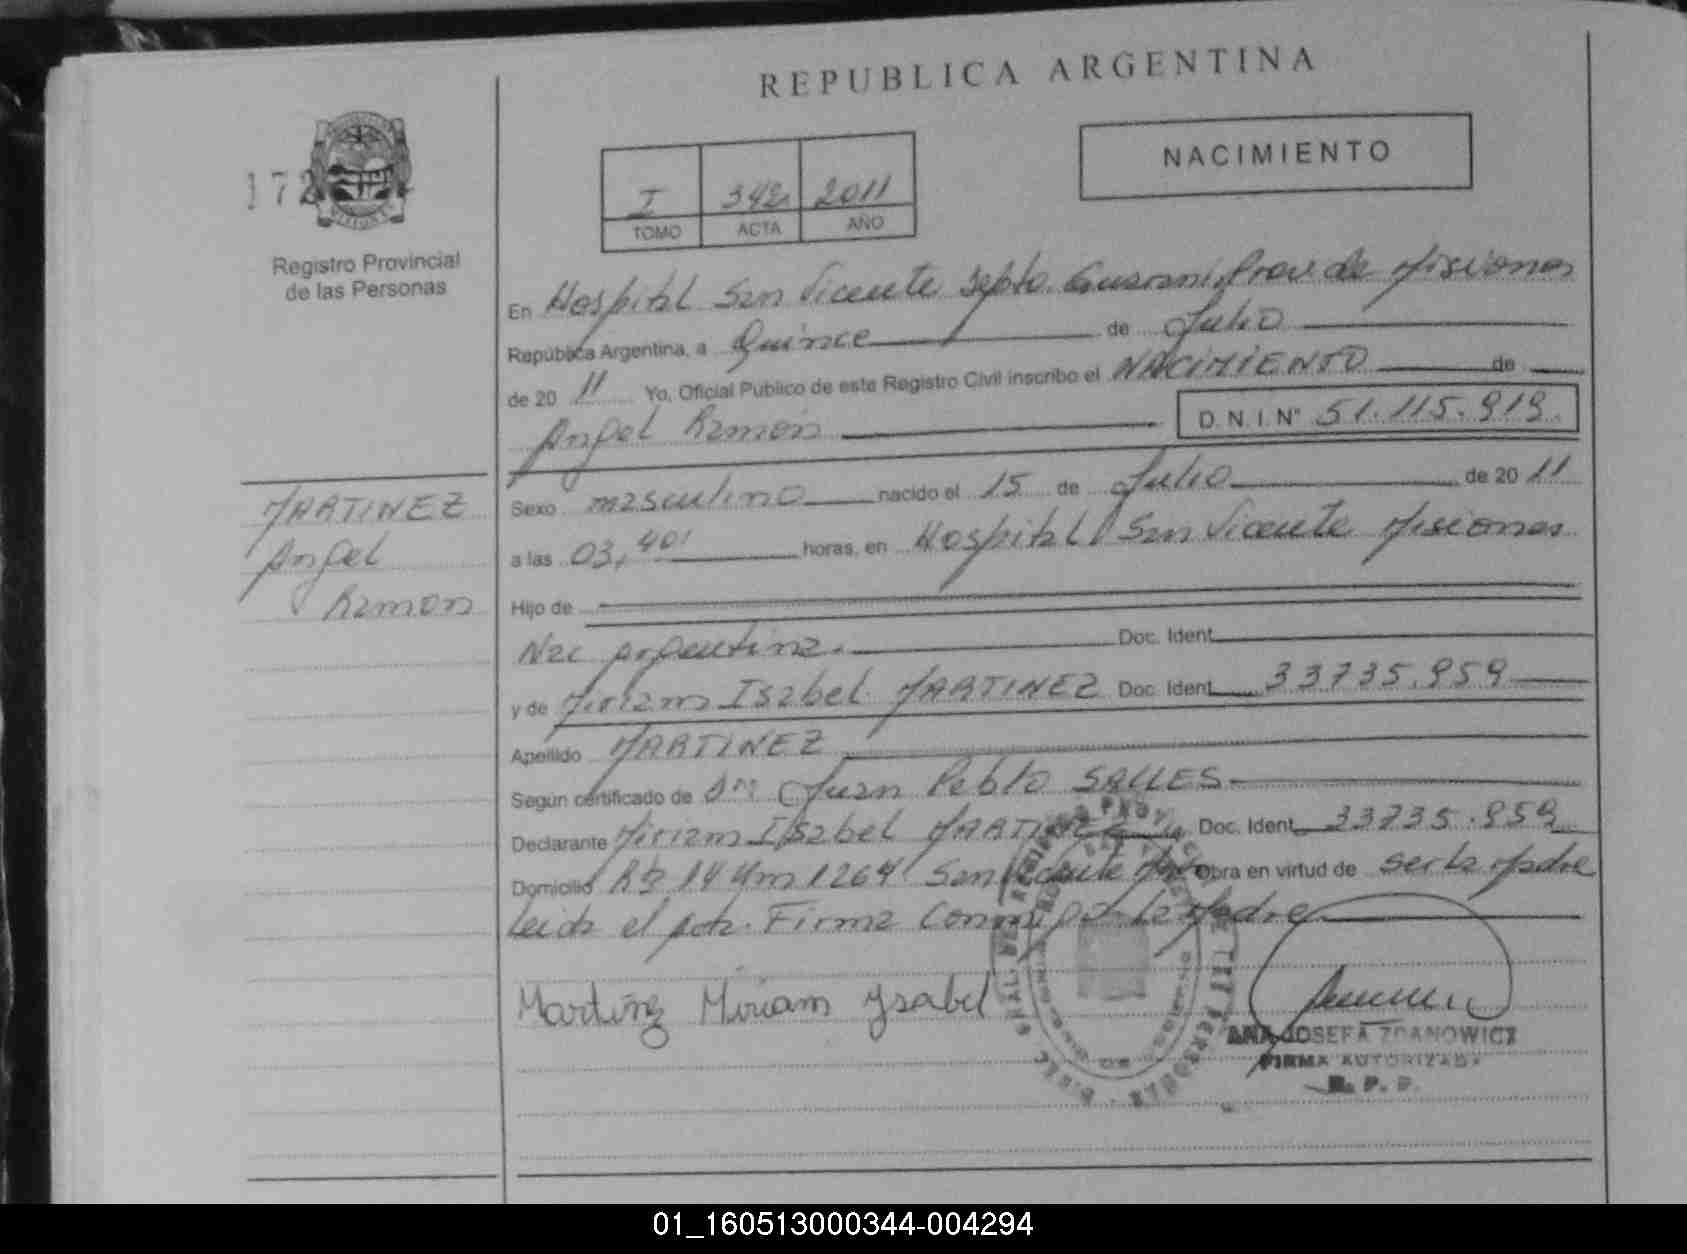 REPUBLICA ARGENTINA
NACIMIENTO
172
I 342 2011
TOMO ACTA AÑO
Registro Provincial
de las Personas
En Hospital San Vicente Depto. Guarani Prov de Misiones
República Argentina, a Quince de Julio
de 20 11 Yo, Oficial Publico de este Registro Civil inscribo el NACIMIENTO de
Angel Ramon D.N.I.Nº 51.115.919.
MARTINEZ
Angel
Ramon
Sexo masculino nacido el 15 de Julio de 20 11
a las 03,40' horas, en Hospital San Vicente Misiones
Hijo de
Nac Argentina. Doc. Ident.
y de Miriam Isabel MARTINEZ Doc. Ident. 33735.959
Apellido MARTINEZ
Según certificado de Dr Juan Pablo SALLES
Declarante Miriam Isabel MARTINEZ Doc. Ident. 33735.959
Domicilio Rta 14 Km 1264 San Vicente Obra en virtud de ser la Madre
Leida el Acta. Firma Conmigo La Madre
Martinez Miriam Ysabel
ANA JOSEFA ZDANOWICZ
FIRMA AUTORIZADA
R. P. P.
01_160513000344-004294